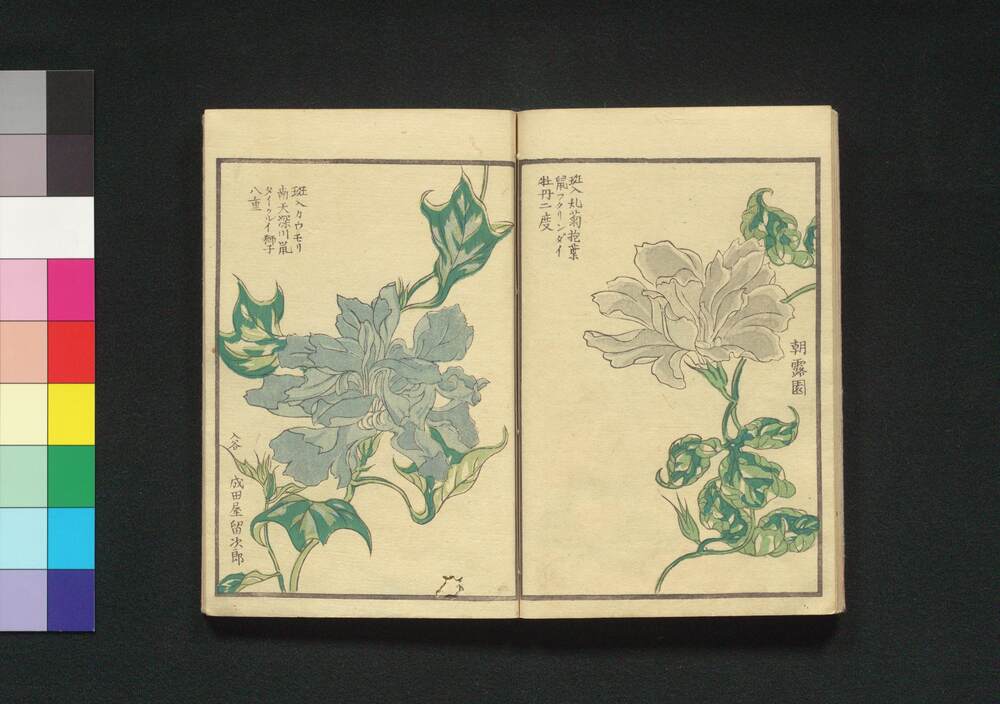 斑入丸菊抱葉
鼠フクリンダイ
牡丹二度
朝露園
斑入カウモリ
南天深川鼠
タイクルイ獅子
八重
入谷
成田屋留次郎